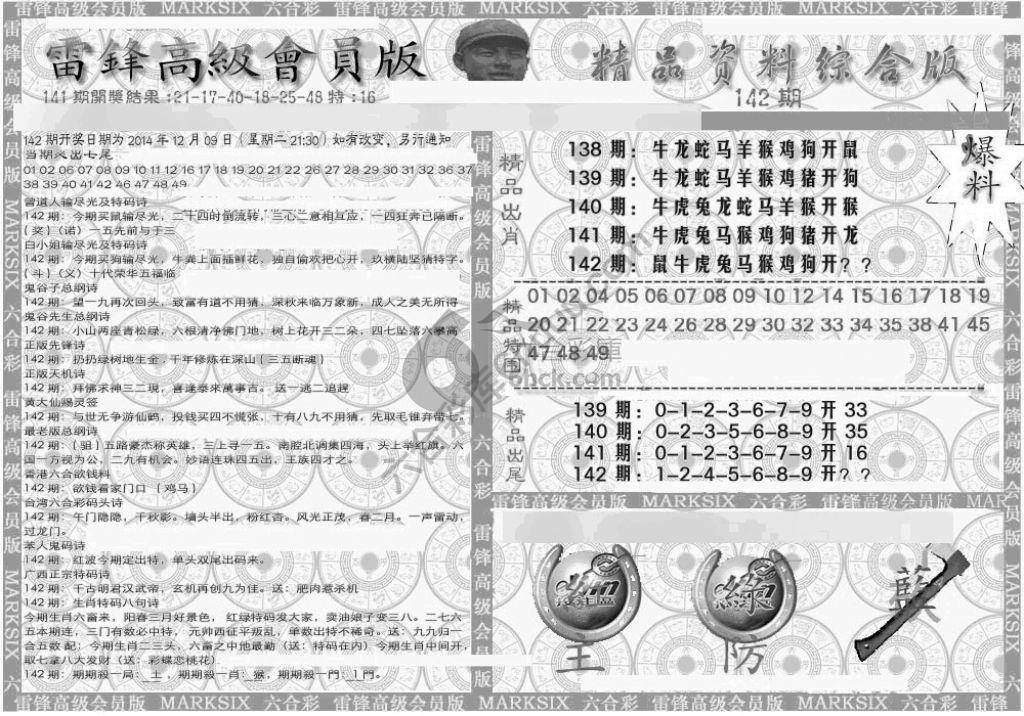 雷锋高级会员版 MARKSIX 六合彩 雷锋高级会员版 MARKSIX 六合彩 雷锋高级会员版 MARKSIX 六合彩 雷锋
雷鋒高級會員版
精品资料综合版
141 期開獎結果:21-17-40-18-25-48 特:16
142 期
爆料
142 期开奖日期为 2014 年 12 月 09 日（星期二 21:30）如有改变，另行通知
当期不出七尾
01 02 06 07 08 09 10 11 12 16 17 18 19 20 21 22 26 27 28 29 30 31 32 36 37
38 39 40 41 42 46 47 48 49
曾道人输尽光及特码诗
142 期：今期买鼠输尽光，二十四时倒流转，三心二意相互应，一四狂奔已隔断。
{奖}（诺）一五先前与于三
白小姐输尽光及特码诗
142 期：今期买狗输尽光，牛粪上面插鲜花，独自偷欢把心开，玖横陆坚猜特字。
{斗}（义）十代荣华五福临
鬼谷子总纲诗
142 期：望一九再次回头，致富有道不用猜，深秋来临万象新，成人之美无所得
鬼谷先生总纲诗
142 期：小山两座青松绿，六根清净佛门地，树上花开三二朵，四七坠落六攀高
正版先锋诗
142 期：扔扔绿树地生金，千年修炼在深山{三五断魂}
正版天机诗
142 期：拜佛求神三二現，喜逢泰來萬事吉。送一逃二追趕
黄大仙赐灵签
142 期：与世无争游仙鹤，投钱买四不慌张，十有八九不用猜，先取毛锥弃带七。
最老版总纲诗
142 期：{狙}五路豪杰称英雄，三上寻一五。南腔北调集四海，头上举红旗。六
国一方视为公，二九有机会。妙语连珠四五出，王族四才之。
香港六合欲钱料
142 期：欲钱看家门口 {鸡马}
台湾六合彩码头诗
142 期：午门隐隐，千秋影。墙头半出，粉红杏。风光正茂，春二月。一声雷动，
过龙门。
苯人鬼码诗
142 期：红波今期定出特，单头双尾出码来。
广西正宗特码诗
142 期：千古明君汉武帝，玄机再创九为佳。送：肥肉惹杀机
142 期：生肖特码八句诗
今期生肖六畜来，阳春三月好景色， 红绿特码发大家，卖油娘子变三八。二七六
五本期连，三门有数必中特， 元帅西征平叛乱，单数出特不稀奇。送：九九归一
含五数 配：今期生肖二三头，六畜之中他最勤（送：特码在内）今期生肖中间开，
取七拿八大发财（送：彩蝶恋桃花）
142 期：期期殺一局：土，期期殺一肖：猴，期期殺一門：1 門。
精品出肖
138 期：牛龙蛇马羊猴鸡狗开鼠
139 期：牛龙蛇马羊猴鸡猪开狗
140 期：牛虎兔龙蛇马羊猴开猴
141 期：牛虎兔马猴鸡狗猪开龙
142 期：鼠牛虎兔马猴鸡狗开？？
精品特围
01 02 04 05 06 07 08 09 10 12 14 15 16 17 18 19
20 21 22 23 24 26 28 29 30 32 33 34 35 38 41 45
47 48 49
精品出尾
139 期：0-1-2-3-6-7-9 开 33
140 期：0-2-3-5-6-8-9 开 35
141 期：0-1-2-3-6-7-9 开 16
142 期：1-2-4-5-6-8-9 开？？
雷锋高级会员版 MARKSIX 六合彩 雷锋高级会员版 MAR
主
綠
防
藍
雷锋高级会员版 MARKSIX 六合彩 雷锋高级会员版 MARKSIX 六合彩 雷锋高级会员版 MARKSIX 六合彩 雷锋